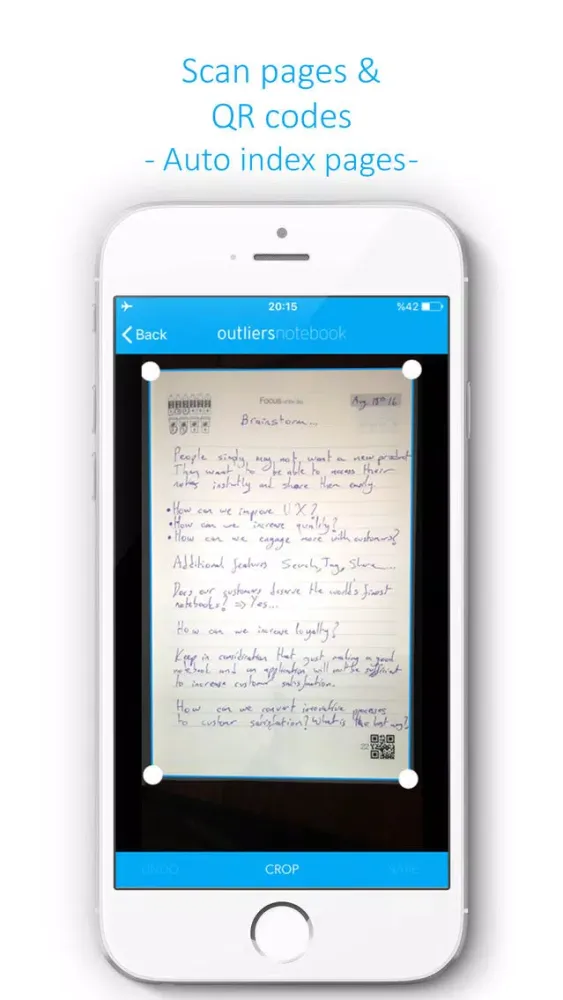 Scan pages &
QR codes
- Auto index pages-
20:15
%42
Back
outliersnotebook
Focus
Aug 18th 16
Brainstorm...
People simply may not want a new product
They want to be able to access their
notes instantly and share them easily.
• How can we improve UX?
• How can we increase quality?
• How can we engage more with customers?
Additional features Search, Tag, Share...
Does our customers deserve the world's finest
notebooks? => Yes...
How can we increase loyalty?
Keep in consideration that just making a good
notebook and an application will not be sufficient
to increase customer satisfaction.
How can we convert innovative processes
to customer satisfaction? What is the best way?
UNDO
CROP
SAVE